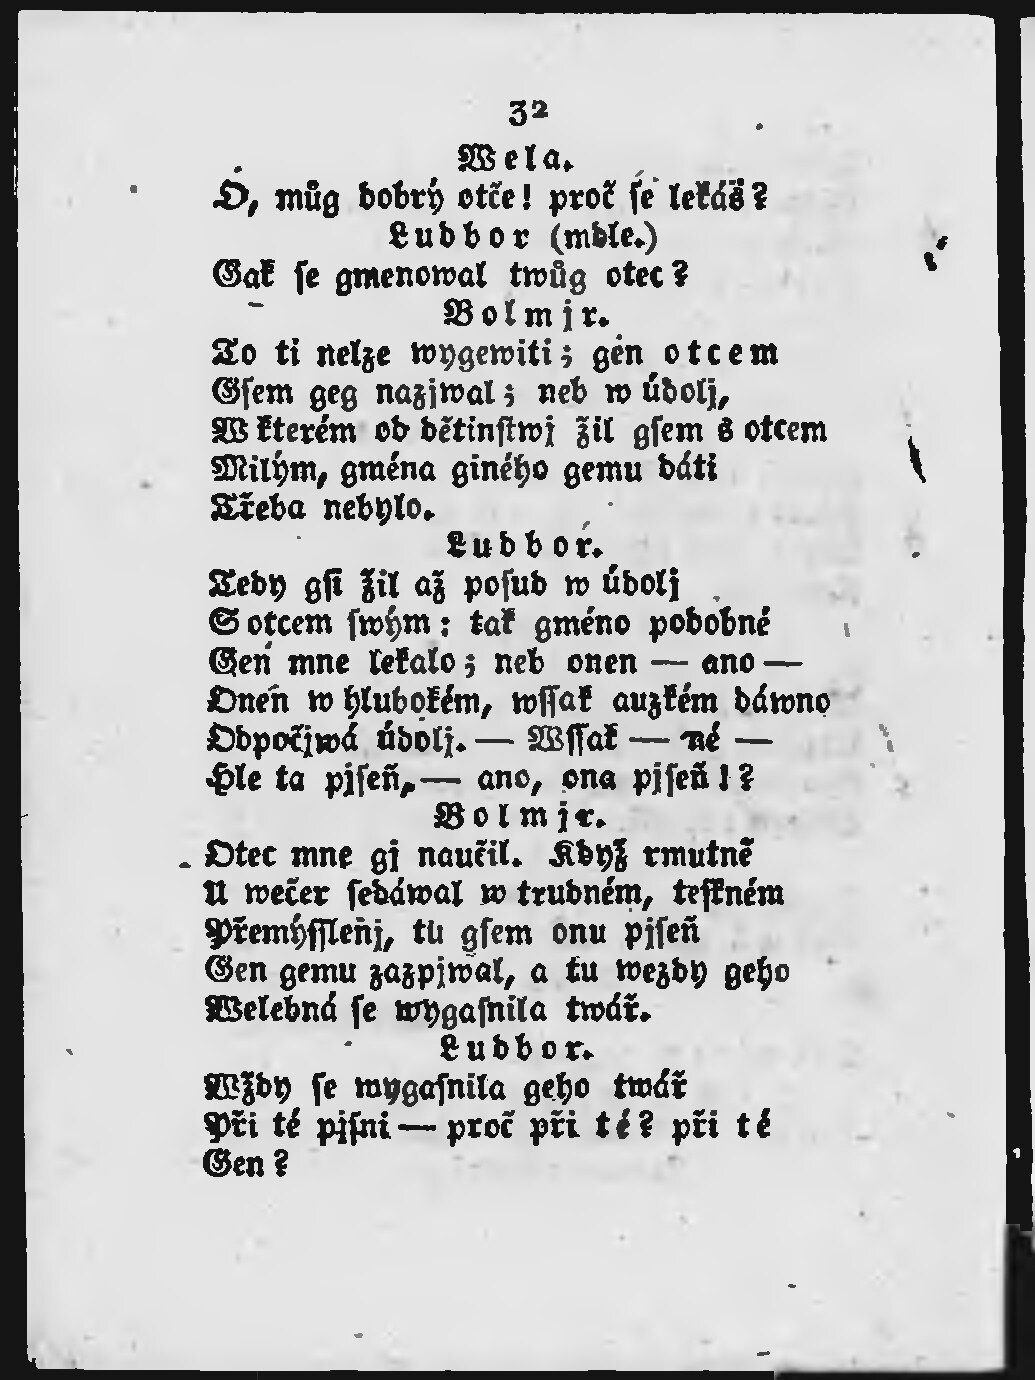 32
Wela.
Ó, můg dobrý otče! proč ſe lekáš?
Ludbor (mdle.)
Gak ſe gmenowal twůg otec?
Bolmjr.
To ti nelze wygewiti; gen otcem
Gſem geg nazjwal; neb w údolj,
W kterém od dětinſtwj žil gſem s otcem
Milým, gména giného gemu dáti
Třeba nebylo.
Ludbor.
Tedy gſi žil až poſud w údolj
S otcem ſwým: tak gméno podobné
Gen mne lekalo; neb onen — ano —
Onen w hlubokém, wſſak auzkém dáwno
Odpočjwá údolj. — Wſſak — né —
Hle ta pjſeň, — ano, ona pjſeň!?
Bolmjr.
Otec mne gj naučil. Když rmutně
U wečer ſedáwal w trudném, teſkném
Přemýſſlenj, tu gſem onu pjſeň
Gen gemu zazpjwal, a tu wezdy geho
Welebná ſe wygaſnila twář.
Ludbor.
Wždy ſe wygaſnila geho twář
Při té pjſni — proč při té? při té
Gen?